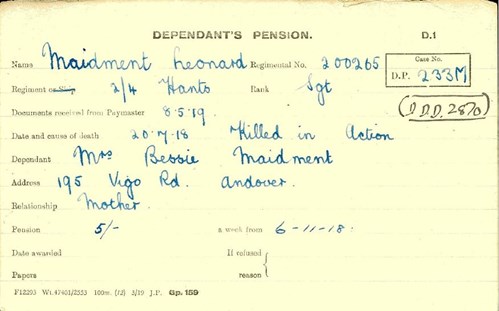 DEPENDANT'S PENSION. D.1
Name Maidment Leonard Regimental No. 200265
Case No. D.P. 233M
Regiment or 2/4 Hants Rank Sgt
(D.D.D. 2870)
Documents received from Paymaster 8.5.19.
Date and cause of death 20.7.18 Killed in Action
Dependant Mrs Bessie Maidment
Address 195 Vigo Rd. Andover.
Relationship Mother.
Pension 5/- a week from 6-11-18.
Date awarded If refused
Papers reason
F12293 Wt.47461/2353 100m. (12) 3/19 J.P. Gp. 159